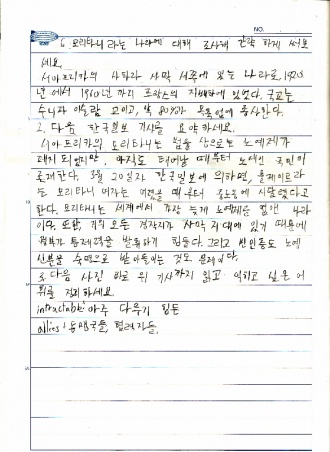 NO.
6. 모리타니 라는 나라에 대해 조사해 간략하게 써보
세요.
서아프리카의 사하라 사막 서쪽에 있는 나라로, 1920
년에서 1960년까지 프랑스의 지배하에 있었다. 국교는
수니파 이슬람교이고, 약 80%가 목축업에 종사한다.
2. 다음 한국일보 기사를 요약하세요.
서아프리카의 모리타니는 법률상으로는 노예제가
폐지되었지만, 아직도 태어날 때부터 노예인 국민이
존재한다. 3월 20일자 한국일보에 의하면,
는 모리타니 여자는 어렸을 때부터 중노동에 시달렸다고
한다. 모리타니는 세계에서 가장 늦게 노예제를 없앤 나라
이다. 또한, 거의 모든 경작지가 사막 지대에 있기 때문에
정부가 통제력을 발휘하기 힘들다. 그리고 본인들도 노예
신분을 숙명으로 받아들이는 것도 문제이다.
3. 다음 사진 바로 위 기사까지 읽고 익히고 싶은 어
휘를 정리하세요.
intractable: 아주 다루기 힘든
allies: 동맹국들, 협력자들.